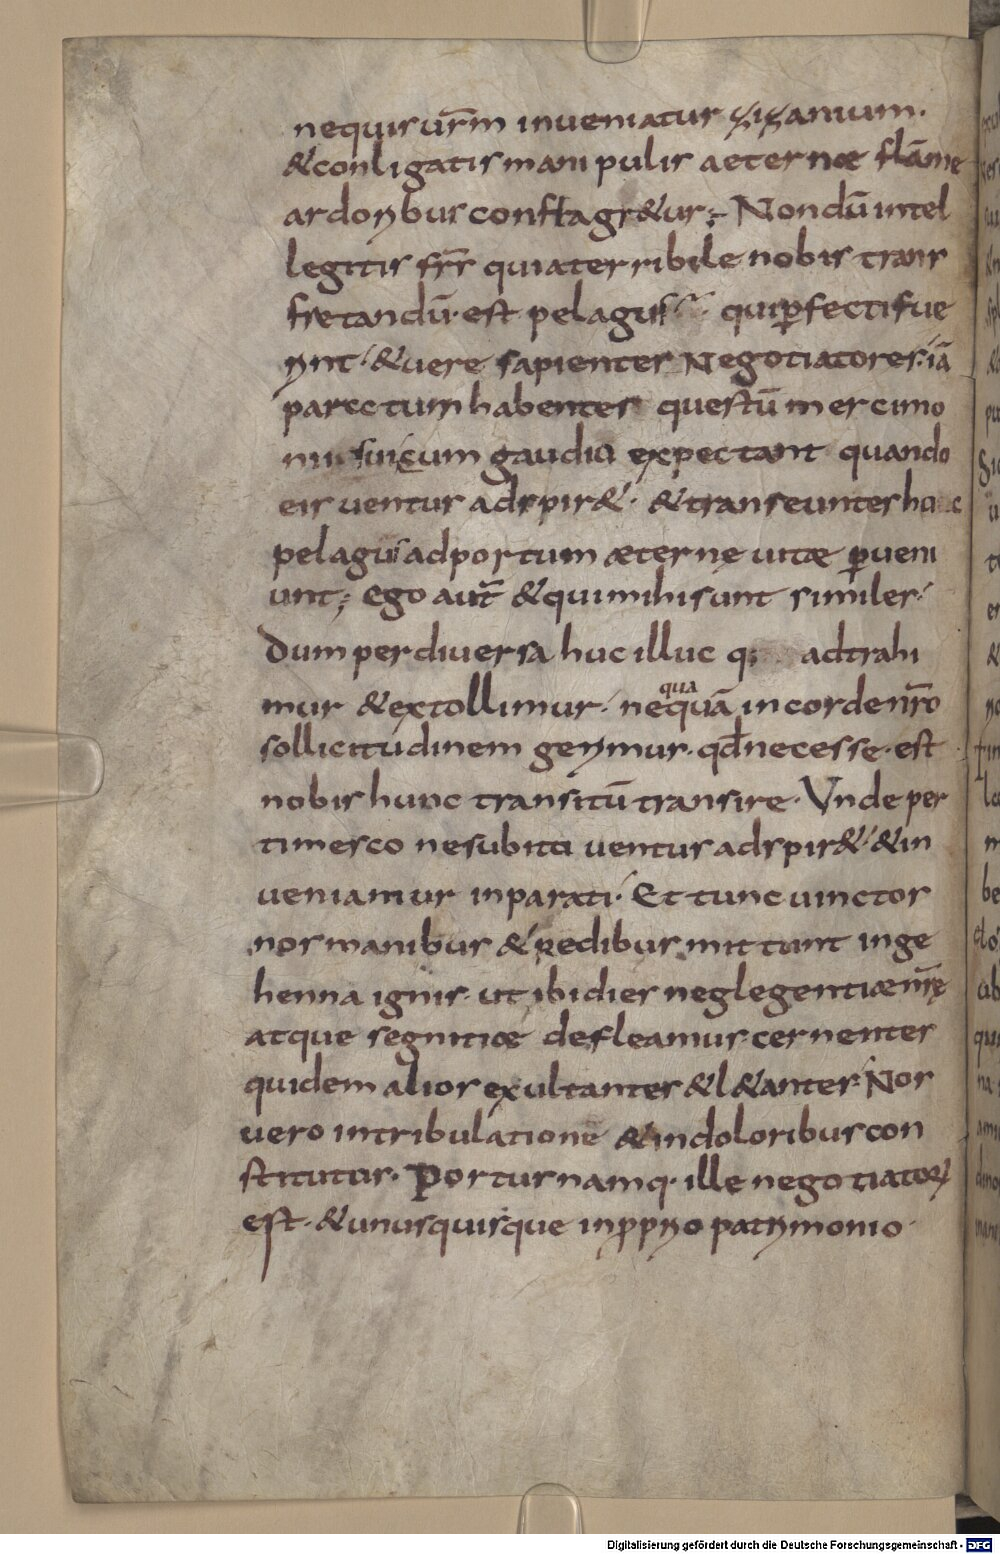 nequis ur̄m inueniatur zizanium.
&conligatis manipulis aeternæ flāme
ardoribus conflagr&ur; Nondū intel
legitis fr̄s quia terribile nobis trans
fretandū·est pelagus qui ꝑfecti fue
rint·&uere sapientes Negotiatores·iā
parectum habentes questū mercimo
nii sui cum gaudia expectant quando
eis uentus adspir&· &transeuntes hoc
pelagus ad portum æternę uitæ ꝑueni
unt; ego aut̄ &qui mihi sunt similes·
Dum per diuersa huc illuc q; adtrahi
mur &extollimur· nequā in corde nr̄o
qua
sollicitudinem gerimur· qđ necesse·est
nobis hunc transitū transire· Vnde per
timesco ne subita uentus adspir&·&in
ueniamur inparati· Et tunc uinctos
nos manibus &pedibus mittant in ge
henna ignis· ut ibi dies neglegentiæ nr̄ę
atque segnitiæ defleamus· cernentes
quidem alios exultantes &l&antes· Nos
uero in tribulatione &in doloribus con
stitutus· Portus namq· ille negotiatorꝝ
est· &unusquisque in ꝓprio patrimonio·
Digitalisierung gefördert durch die Deutsche Forschungsgemeinschaft - DFG